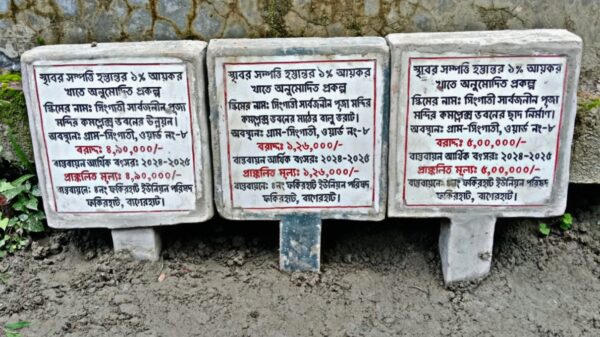 স্থাবর সম্পত্তি হস্তান্তর ১% আয়কর
খাতে অনুমোদিত প্রকল্প
স্কিমের নাম: সিংগাতী সার্বজনীন পূজা
মন্দির কমপ্লেক্স ভবনের উন্নয়ন।
অবস্থান: গ্রাম-সিংগাতী, ওয়ার্ড নং-৮
বরাদ্দ: ৪,৯০,০০০/-
বাস্তবায়ন আর্থিক বৎসর: ২০২৪-২০২৫
প্রাক্কলিত মূল্য: ৪,৯০,০০০/-
বাস্তবায়নে: ৪নং ফকিরহাট ইউনিয়ন পরিষদ
ফকিরহাট, বাগেরহাট।
স্থাবর সম্পত্তি হস্তান্তর ১% আয়কর
খাতে অনুমোদিত প্রকল্প
স্কিমের নাম: সিংগাতী সার্বজনীন পূজা মন্দির
কমপ্লেক্স ভবনের মাঠের বালু ভরাট।
অবস্থান: গ্রাম-সিংগাতী, ওয়ার্ড নং-৮
বরাদ্দ: ১,২৬,০০০/-
বাস্তবায়ন আর্থিক বৎসর: ২০২৪-২০২৫
প্রাক্কলিত মূল্য: ১,২৬,০০০/-
বাস্তবায়নে: ৪নং ফকিরহাট ইউনিয়ন পরিষদ
ফকিরহাট, বাগেরহাট।
স্থাবর সম্পত্তি হস্তান্তর ১% আয়কর
খাতে অনুমোদিত প্রকল্প
স্কিমের নাম: সিংগাতী সার্বজনীন পূজা
মন্দির কমপ্লেক্স ভবনের ছাদ নির্মাণ।
অবস্থান: গ্রাম-সিংগাতী, ওয়ার্ড নং-৮
বরাদ্দ: ৫,০০,০০০/-
বাস্তবায়ন আর্থিক বৎসর: ২০২৪-২০২৫
প্রাক্কলিত মূল্য: ৫,০০,০০০/-
বাস্তবায়নে: ৪নং ফকিরহাট ইউনিয়ন পরিষদ
ফকিরহাট, বাগেরহাট।